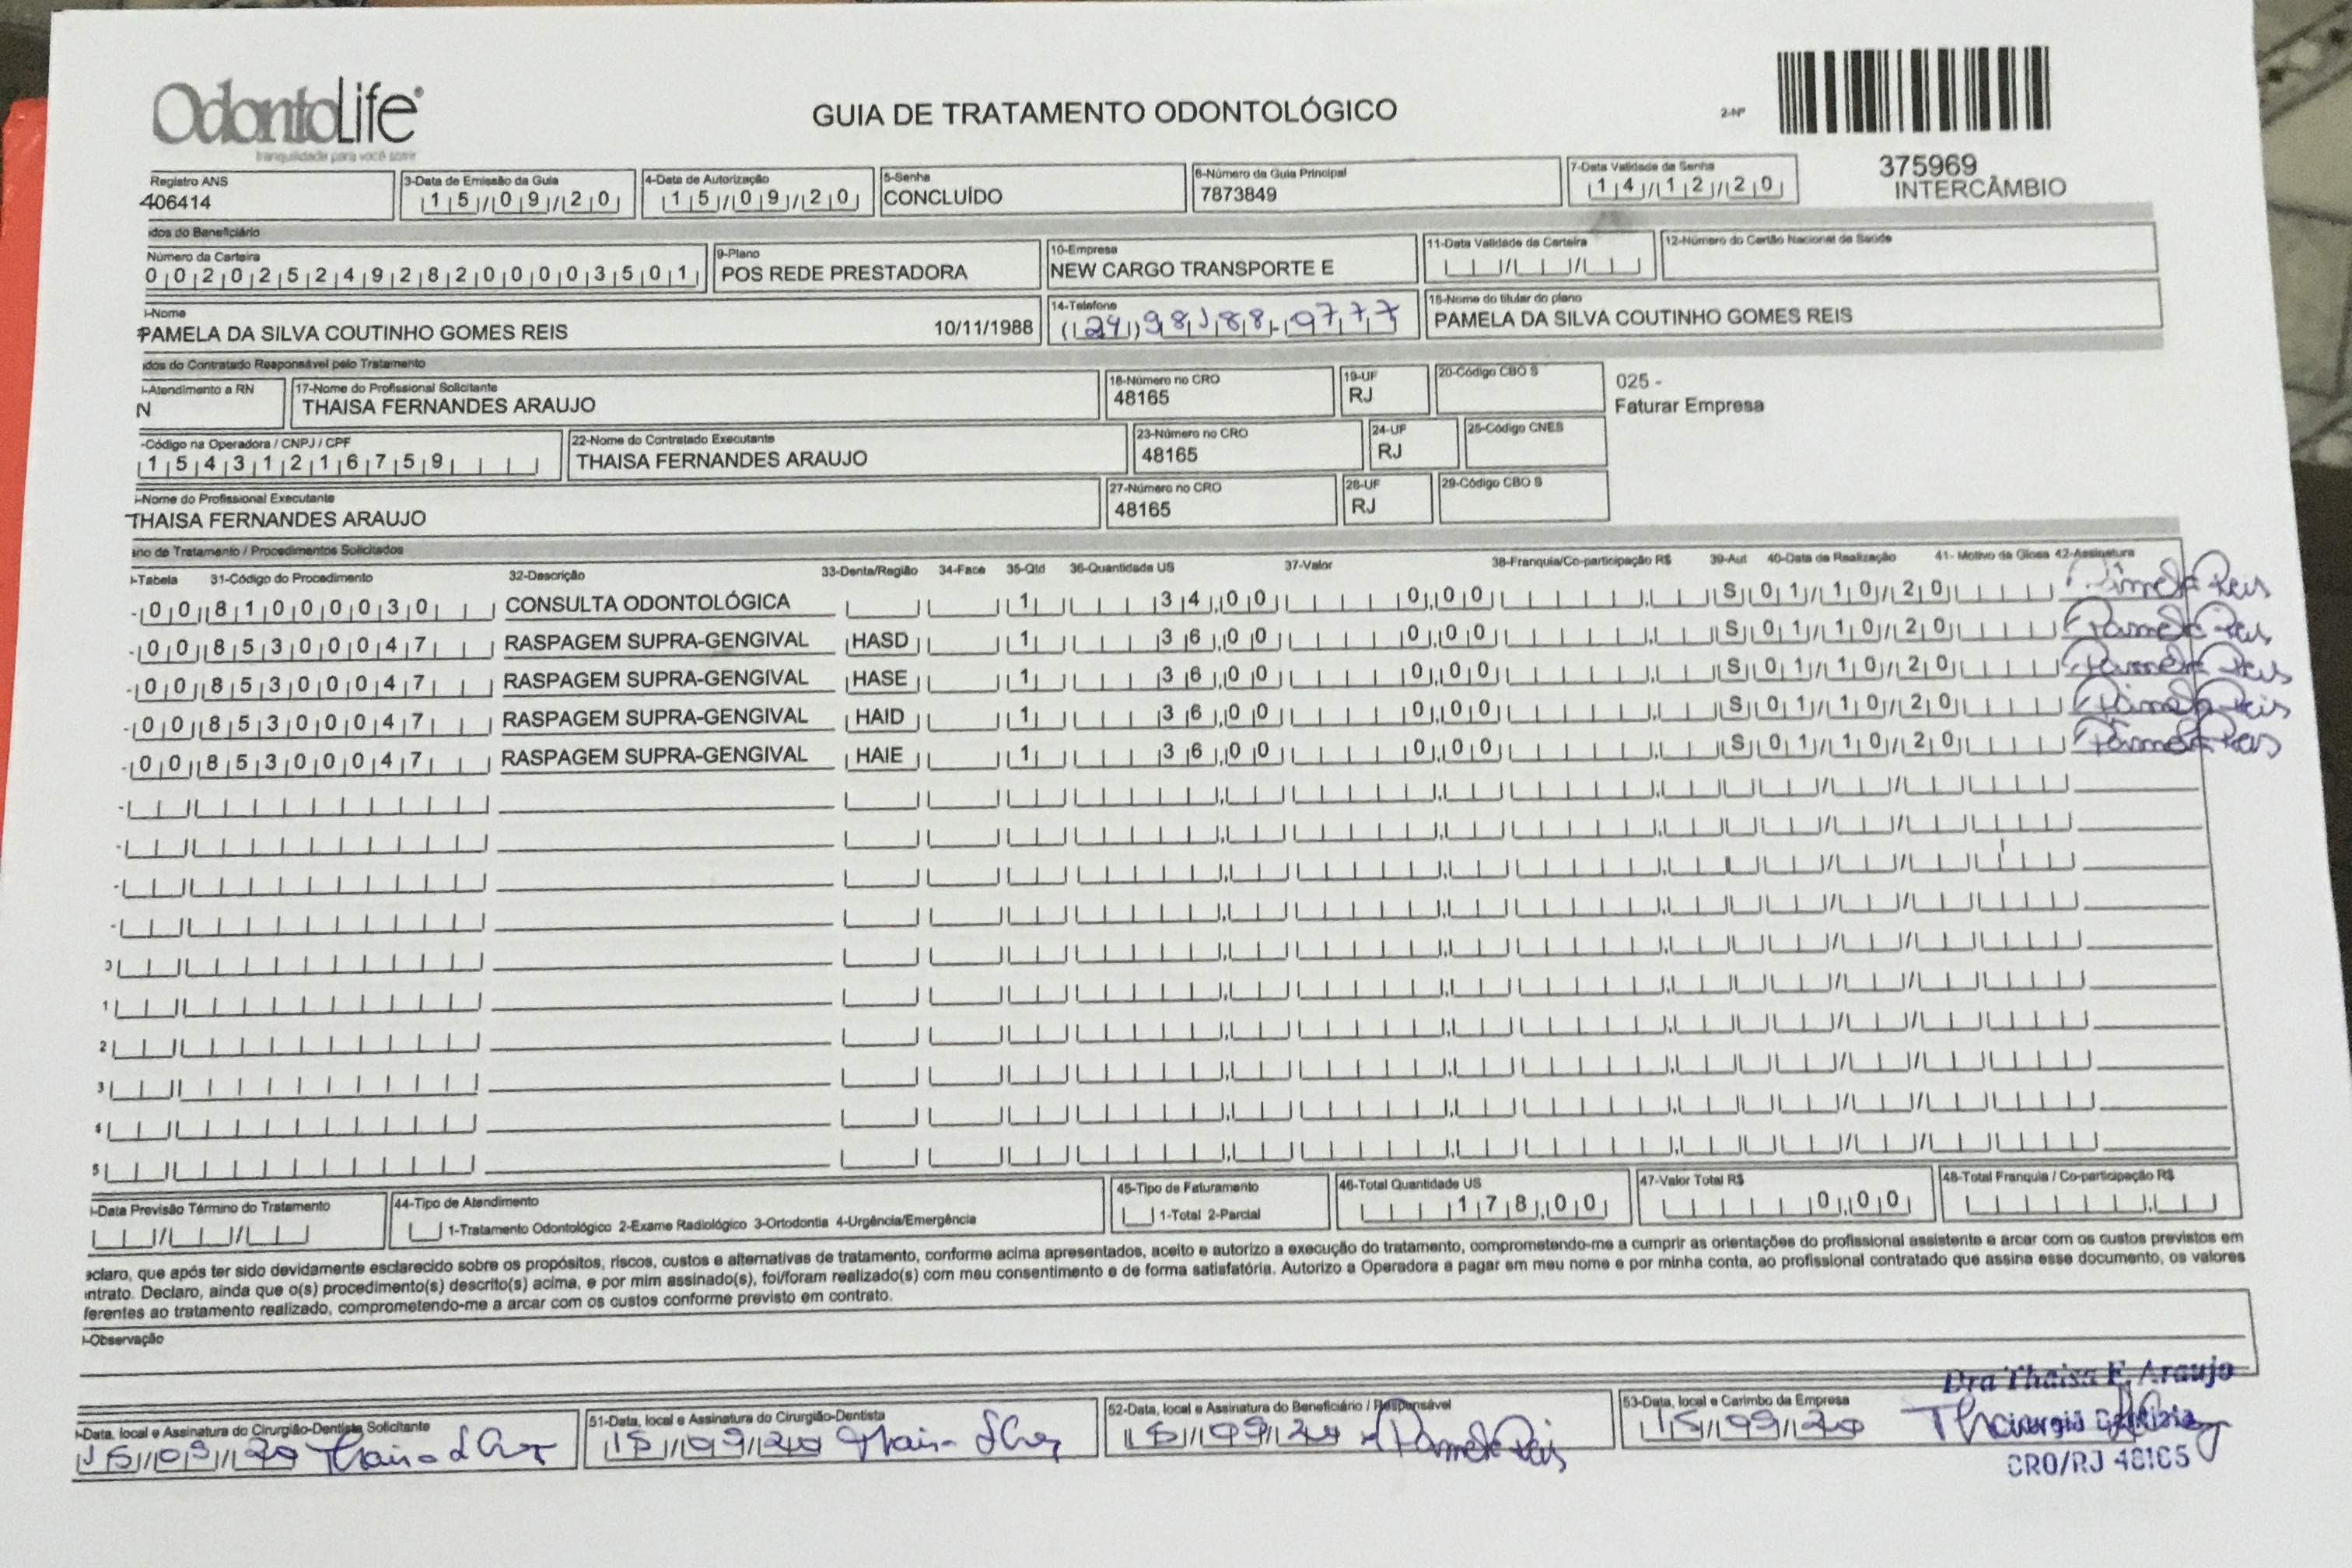 OdontoLife®
tranquilidade para você sorrir
GUIA DE TRATAMENTO ODONTOLÓGICO
2-Nº
375969
INTERCÂMBIO
Registro ANS
406414
3-Data de Emissão da Guia
15/09/20
4-Data de Autorização
15/09/20
5-Senha
CONCLUÍDO
6-Número da Guia Principal
7873849
7-Data Validade da Senha
14/12/20
dos do Beneficiário
Número da Carteira
00202524928200003501
9-Plano
POS REDE PRESTADORA
10-Empresa
NEW CARGO TRANSPORTE E
11-Data Validade da Carteira
12-Número do Cartão Nacional de Saúde
-Nome
PAMELA DA SILVA COUTINHO GOMES REIS 10/11/1988
14-Telefone
(24) 98188-9777
15-Nome do titular do plano
PAMELA DA SILVA COUTINHO GOMES REIS
dos do Contratado Responsável pelo Tratamento
-Atendimento a RN
N
17-Nome do Profissional Solicitante
THAISA FERNANDES ARAUJO
18-Número no CRO
48165
19-UF
RJ
20-Código CBO S
025 -
Faturar Empresa
-Código na Operadora / CNPJ / CPF
15431216759
22-Nome do Contratado Executante
THAISA FERNANDES ARAUJO
23-Número no CRO
48165
24-UF
RJ
25-Código CNES
-Nome do Profissional Executante
THAISA FERNANDES ARAUJO
27-Número no CRO
48165
28-UF
RJ
29-Código CBO S
ano de Tratamento / Procedimentos Solicitados
-Tabela 31-Código do Procedimento 32-Descrição 33-Dente/Região 34-Face 35-Qtd 36-Quantidade US 37-Valor 38-Franquia/Co-participação R$ 39-Aut 40-Data da Realização 41- Motivo da Glosa 42-Assinatura
-00 81000030 CONSULTA ODONTOLÓGICA 1 34,00 0,00 S 01/10/20 Pâmela Reis
-00 85300047 RASPAGEM SUPRA-GENGIVAL HASD 1 36,00 0,00 S 01/10/20 Pâmela Reis
-00 85300047 RASPAGEM SUPRA-GENGIVAL HASE 1 36,00 0,00 S 01/10/20 Pâmela Reis
-00 85300047 RASPAGEM SUPRA-GENGIVAL HAID 1 36,00 0,00 S 01/10/20 Pâmela Reis
-00 85300047 RASPAGEM SUPRA-GENGIVAL HAIE 1 36,00 0,00 S 01/10/20 Pâmela Reis
-
-
-
-
0
1
2
3
4
5
-Data Previsão Término do Tratamento
44-Tipo de Atendimento
1-Tratamento Odontológico 2-Exame Radiológico 3-Ortodontia 4-Urgência/Emergência
45-Tipo de Faturamento
1-Total 2-Parcial
46-Total Quantidade US
178,00
47-Valor Total R$
0,00
48-Total Franquia / Co-participação R$
eclaro, que após ter sido devidamente esclarecido sobre os propósitos, riscos, custos e alternativas de tratamento, conforme acima apresentados, aceito e autorizo a execução do tratamento, comprometendo-me a cumprir as orientações do profissional assistente e arcar com os custos previstos em
ontrato. Declaro, ainda que o(s) procedimento(s) descrito(s) acima, e por mim assinado(s), foi/foram realizado(s) com meu consentimento e de forma satisfatória. Autorizo a Operadora a pagar em meu nome e por minha conta, ao profissional contratado que assina esse documento, os valores
ferentes ao tratamento realizado, comprometendo-me a arcar com os custos conforme previsto em contrato.
-Observação
-Data, local e Assinatura do Cirurgião-Dentista Solicitante
15/09/20
51-Data, local e Assinatura do Cirurgião-Dentista
15/09/20
52-Data, local e Assinatura do Beneficiário / Responsável
15/09/20 Pâmela Reis
53-Data, local e Carimbo da Empresa
15/09/20
Dra Thaisa F. Araujo
Cirurgiã Dentista
CRO/RJ 48165